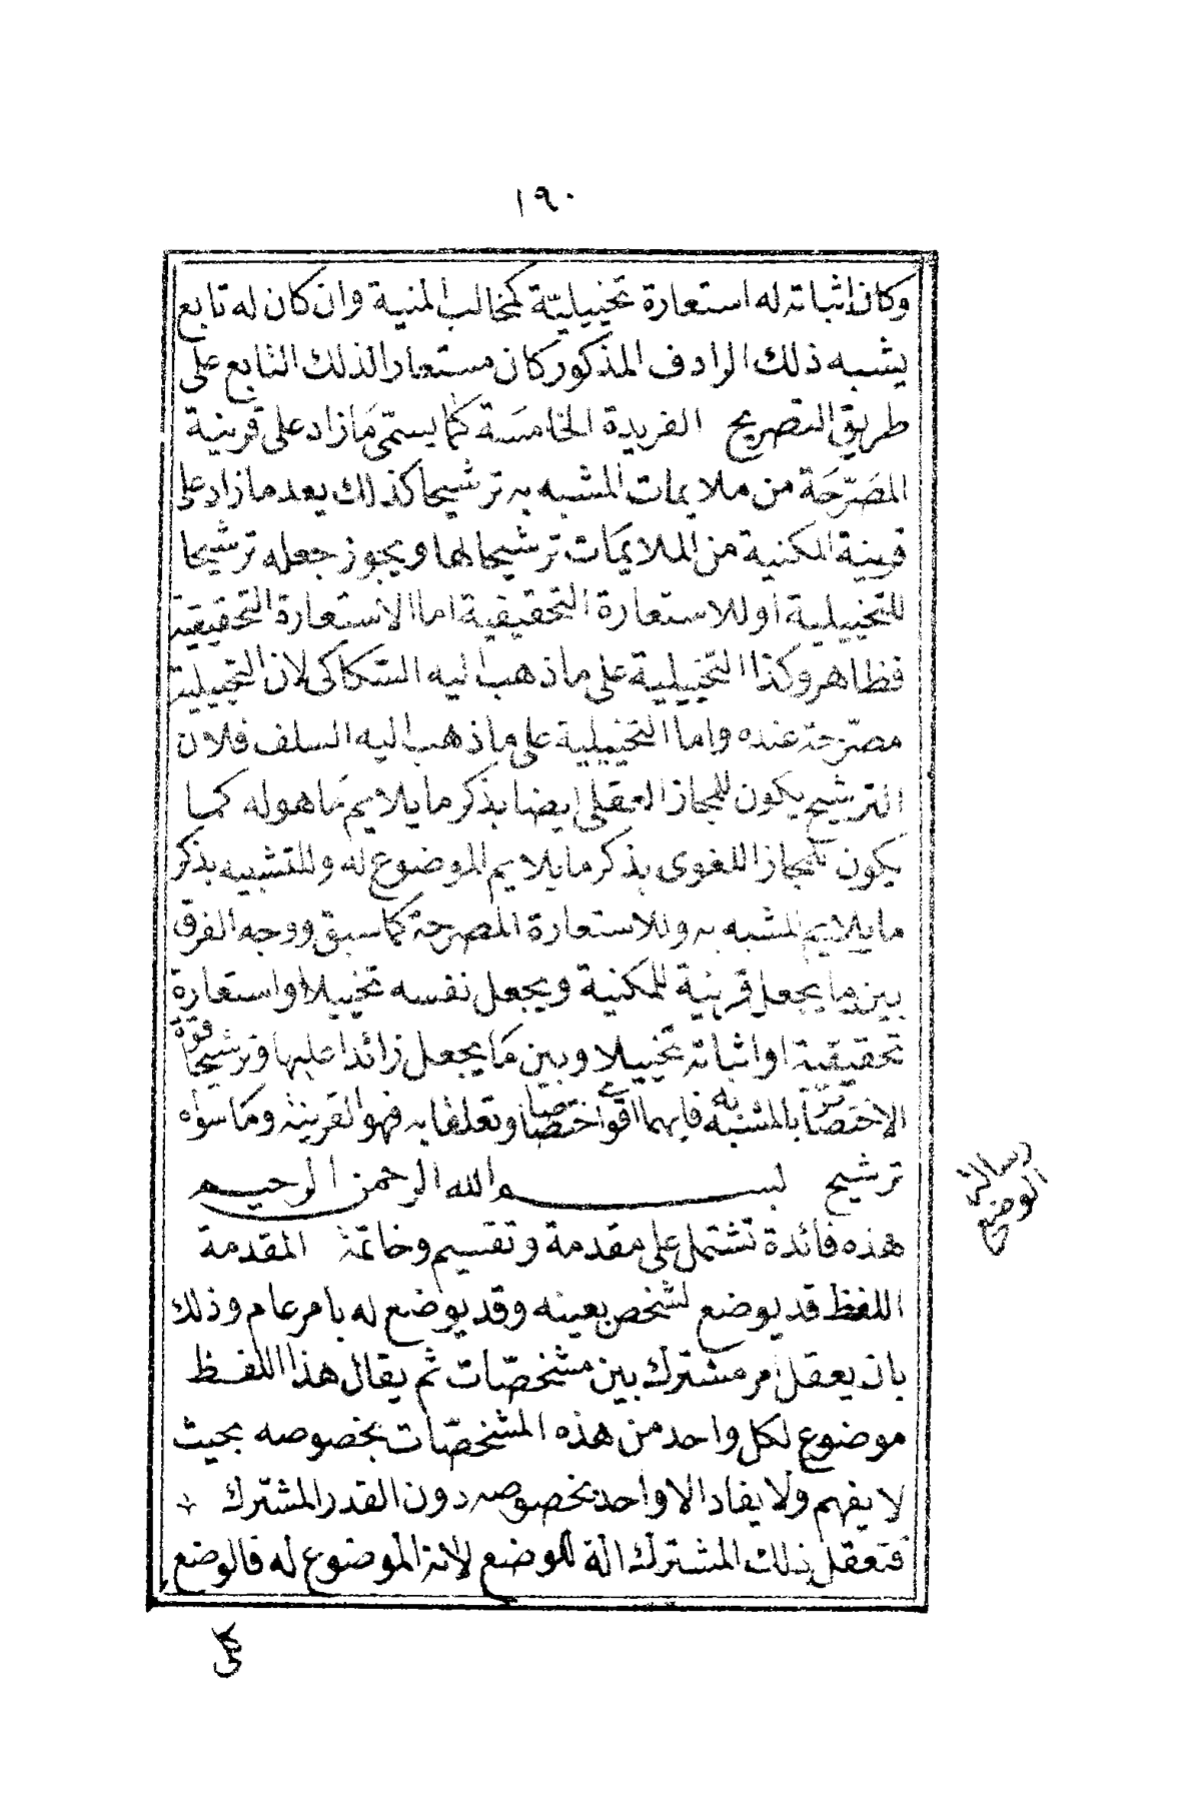 ١٩٠
وكان اثباته له استعارة تخييليّة كمخالب المنية وان كان له تابع
يشبه ذلك الرادف المذكور كان مستعارا لذلك التابع على
طريق التصريح الفريدة الخامسَة كما يسمّى مَا زاد على قرينية
المصَرّحَة من ملايمات المشبه به ترشيحا كذلك يعد ما زاد على
قرينة المكنية من الملايمَات ترشيحا لها ويجوز جعله ترشيحا
للتخييلية او للاستعارة التحقيقية اما الاستعارة التحقيقية
فظاهر وكذا التخييلية على ما ذهب اليه السّكاكى لان التخييلية
مصرّحة عنده واما التخييلية على ما ذهب اليه السلف فلان
الترشيح يكون للمجاز العقلى ايضا بذكر ما يلايم مَا هو له كما
يكون للمجاز اللغوى بذكر ما يلايم الموضوع له وللتشبيه بذكر
ما يلايم المشبه به وللاستعارة المصرحة كما سبق ووجه الفرق
بين ما يجعل قرينية للمكنية ويجعل نفسه تخييلا او استعارة
تحقيقية او اثباته تخييلا وبين مَا يجعل زائدا عليها وترشيحًا قوة
الاختصاص بالمشبه به فايهما اقوى اختصاصا وتعلقا به فهو القرينة ومَا سواه
ترشيح بسم الله الرحمن الرحيم
رسالة
الوضع
هذه فائدة تشتمل على مقدمة وتقسيم وخاتمة المقدمة
اللفظ قد يوضع لشخص بعينه وقد يوضع له بامر عام وذلك
بان يعقل امر مشترك بين مشخصّات ثم يقال هذا اللفظ
موضوع لكل واحد من هذه المشخصّات بخصوصه بحيث
لا يفهم ولا يفاد الا واحد بخصوصه دون القدر المشترك
فتعقل ذلك المشترك الة للوضع لانه الموضوع له فالوضع
كلى